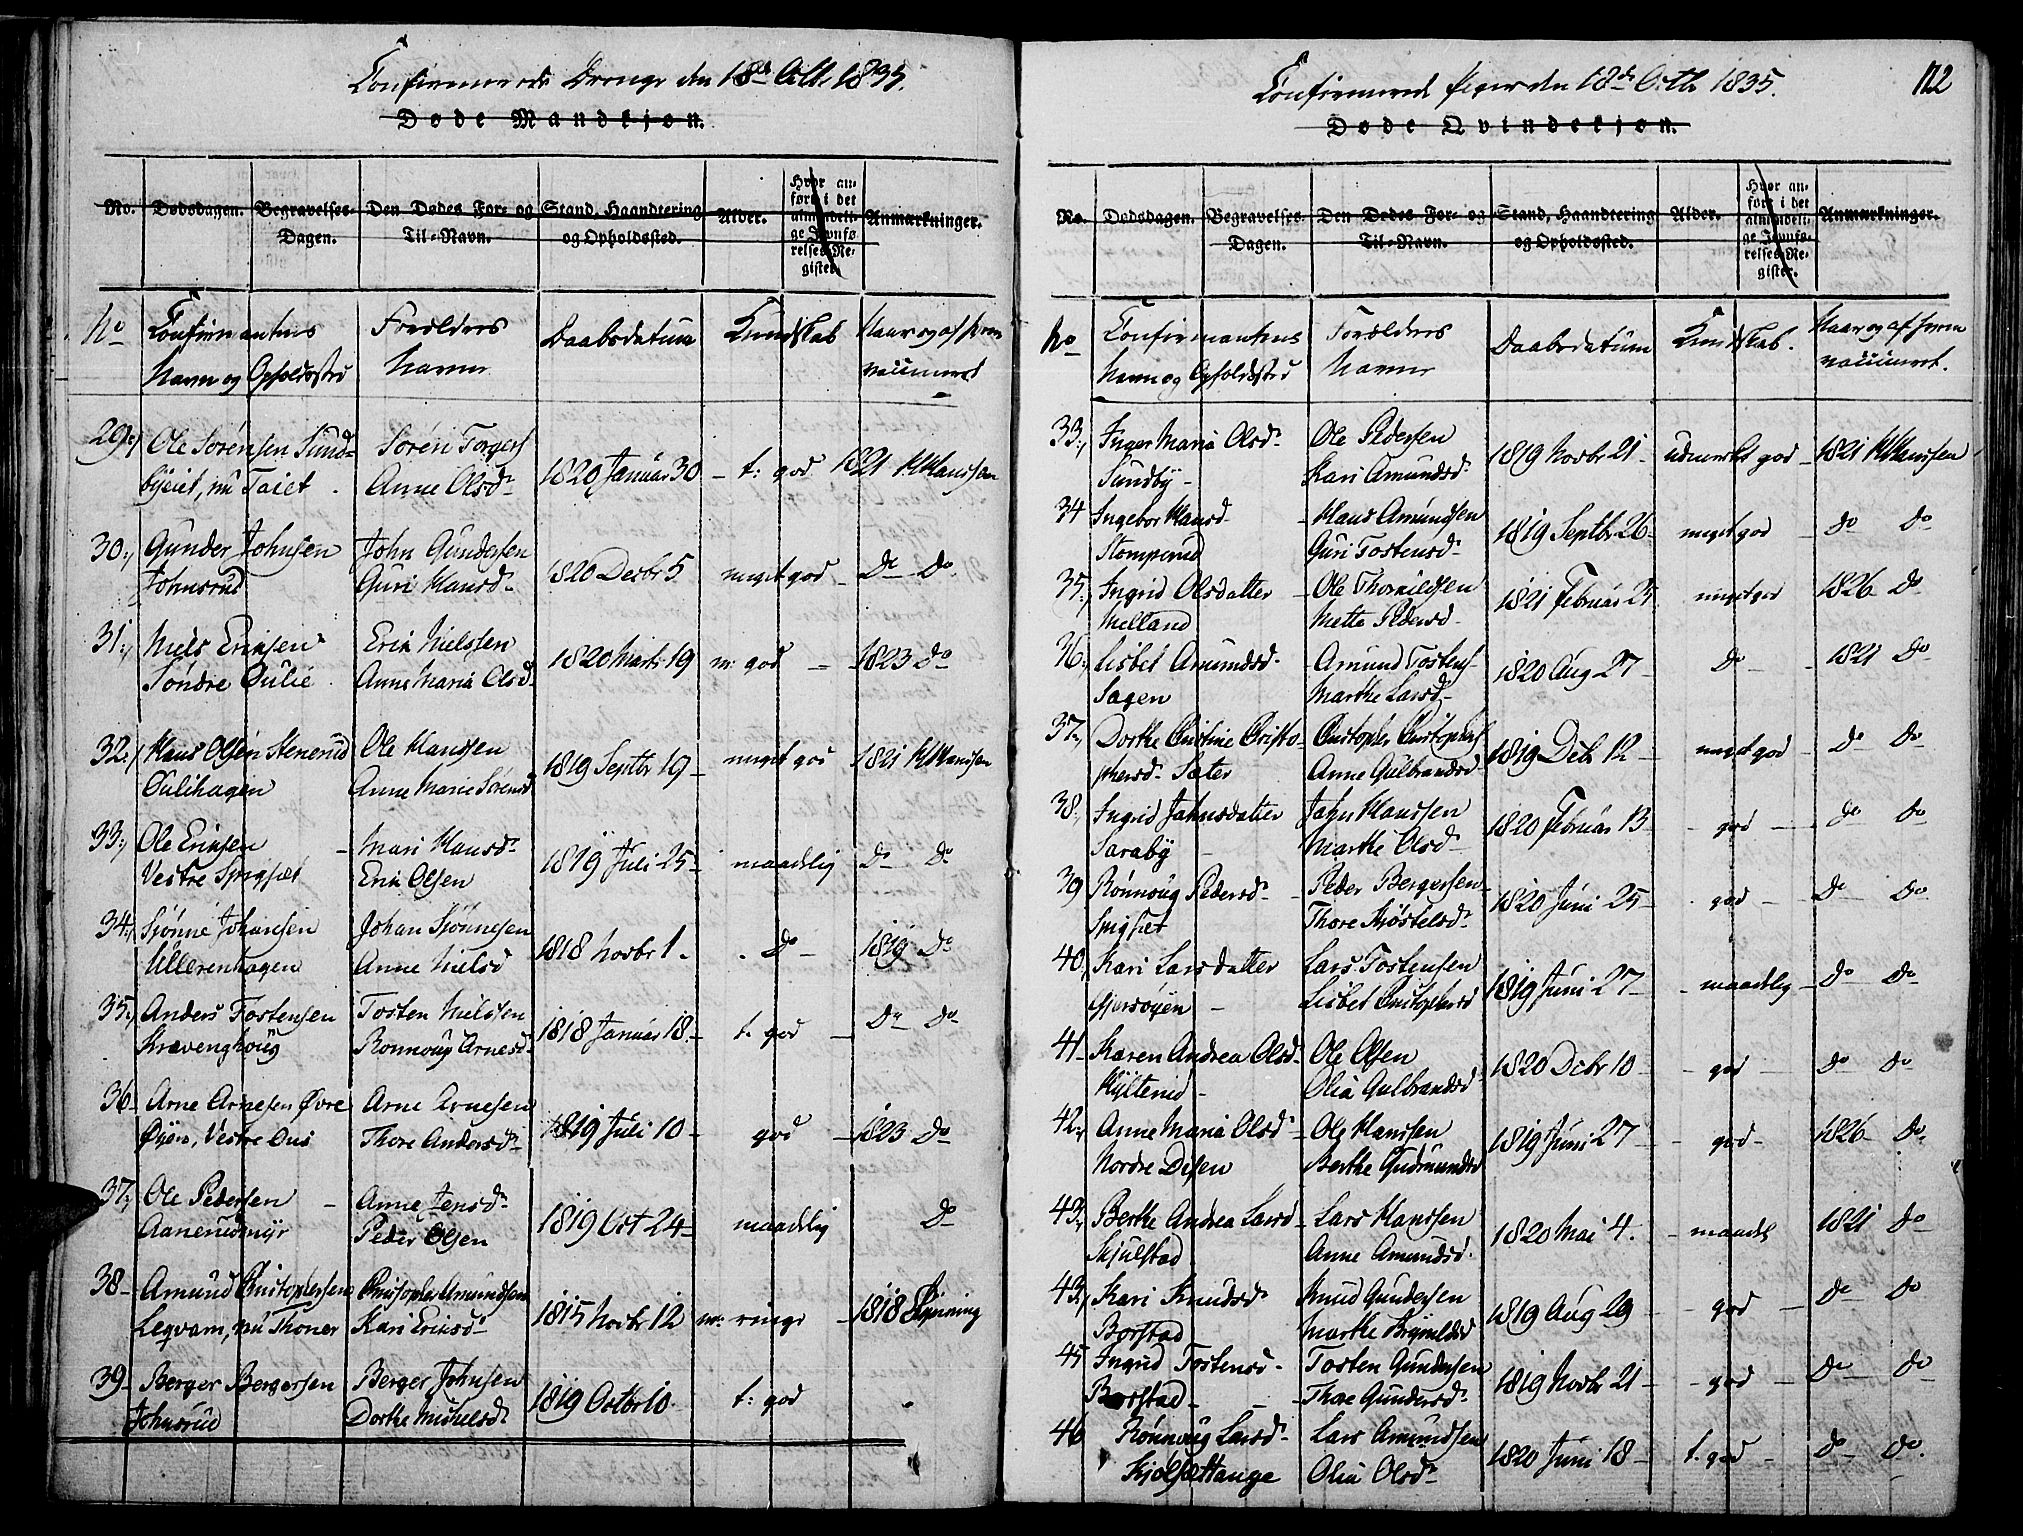 Confirmerede Drenge den 18d Octbr 1835.
Døde Mandkjøn.
No. Dødsdagen. Begravelses-Dagen. Den Dødes For- og Til-Navn. Stand, Haandtering og Opholdssted. Alder. Hvor anført i det almindelige Jevnførelses-Register. Anmærkninger.
No Confirmantens Navn og Opholdssted Forældres Navne Daabsdatum Kundskab Naar og af hvem vaccineret
29 Ole Sørensen Sund- Søren Torgers 1820 Januar 30 t: god 1821 H Hanssen
byeiet, nu Taiet Anne Olsd
30 Gunder Johnsen John Gundersen 1820 Decbr 5 meget god Do Do
Johnsrud Guri Hansd
31 Niels Eriksen Erik Nielssen 1820 Marts 19 m: god 1823 Do
Søndre Oulie Anne Maria Olsd
32 Hans Olsen Stenerud Ole Hanssen 1819 Septbr 19 meget god 1821 H Hanssen
Oulihagen Anne Marie Sørensd
33 Ole Eriksen Mari Hansd 1819 Juli 25 maadlig Do Do
Vestre Spigset Erik Olsen
34 Sjønne Johansen Johan Sjønnesen 1818 Novbr 1 Do 1819 Do
Ullerenhagen Anne Nielsd
35 Anders Tostensen Tosten Nielssen 1818 Januar 18 t. god Do Do
Kravenghoug Rønnoug Arnesd
36 Arne Arnesen Øvre Arne Arnesen 1819 Juli 10 god 1823 Do
Øyen, Vestre Ous Thore Andersd
37 Ole Pedersen Anne Jensd 1819 Oct 24 maadlig Do
Aanerudmyr Peder Olsen
38 Amund Christophersen Christopher Amundsen 1815 Novbr 12 m: ringe 1818
Leqvam, nu Thoner Kari Eriksd
39 Berger Bergersen Berger Johnsen 1819 Octbr 10 t: god
Johnsrud Dorthe Mikelsd
Confirmerede Piger den 18d Octbr 1835.
122
Døde Qvindekjøn.
No. Dødsdagen. Begravelses-Dagen. Den Dødes For- og Til-Navn. Stand, Haandtering og Opholdssted. Alder. Hvor anført i det almindelige Jevnførelses-Register. Anmærkninger.
No Confirmantens Navn og Opholdssted Forældres Navne Daabsdatum Kundskab. Naar og af hvem vaccineret.
33 Inger Maria Olsd Ole Pedersen 1819 Novbr 21 udmerket god 1821 H Hanssen
Sundby Kari Amundsd
34 Ingebor Hansd Hans Amundsen 1819 Septbr 26 meget god Do Do
Stomperud Guri Tostensd
35 Ingrid Olsdatter Ole Thorkildsen 1821 Februar 25 meget god 1826 Do
Melland Mette Pedersd
36 Lisbet Amundsd Amund Tostens 1820 Aug 27 Do 1821 Do
Sagen Marthe Larsd
37 Dorthe Christine Christo- Christopher Christophers 1819 Decbr 12 meget god Do Do
phersd Sæter Anne Gulbrandsd
38 Ingrid Johnsdatter John Hanssen 1820 Februar 13 god Do Do
Saraby Marthe Olsd
39 Rønnoug Pedersd Peder Bergersen 1820 Juni 25 god Do Do
Spigset Thore Kjøstelsd
40 Kari Larsdatter Lars Tostensen 1819 Juni 27 maadlig Do Do
Gjersøyen Lisbet Christophersd
41 Karen Andrea Olsd Ole Olsen 1820 Decbr 10 god Do Do
Hylterud Olia Gulbrandsd
42 Anne Maria Olsd Ole Hanssen 1819 Juni 27 god 1826 Do
Nordre Disen Berthe Gudmundsd
43 Berthe Andrea Larsd Lars Hanssen 1820 Mai 4. maadel 1821 Do
Skjulstad Anne Amundsd
43 Kari Knudsd Knud Gundersen 1819 Aug 29 god Do Do
Borstad Marthe Brynildsd
45 Ingrid Tostensd Tosten Gundersen 1819 Novbr 21 god Do Do
Borstad Thore Gundersd
46 Rønnoug Larsd Lars Amundsen 1820 Juni 18 t. god Do Do
Kjolsethauge Olia Olsd